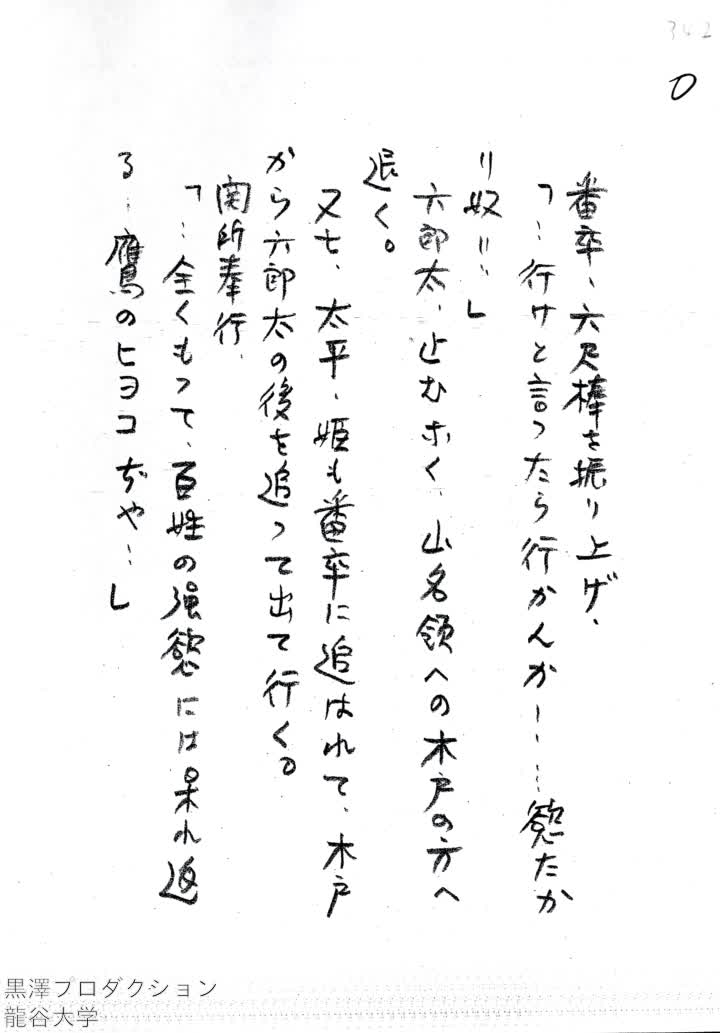 342
番卒、六尺棒を振り上げ、
「…行けと言つたら行かんかー……慾たか
り奴リ…」
六郎太、止むなく、山名領への木戸の方へ
退く。
又七、太平、姫も番卒に追はれて、木戸
から六郎太の後を追つて出て行く。
関所奉行、
「…全くもつて、百姓の強慾には呆れ返
る…鷹のヒヨコぢや…」
黒澤プロダクション
龍谷大学